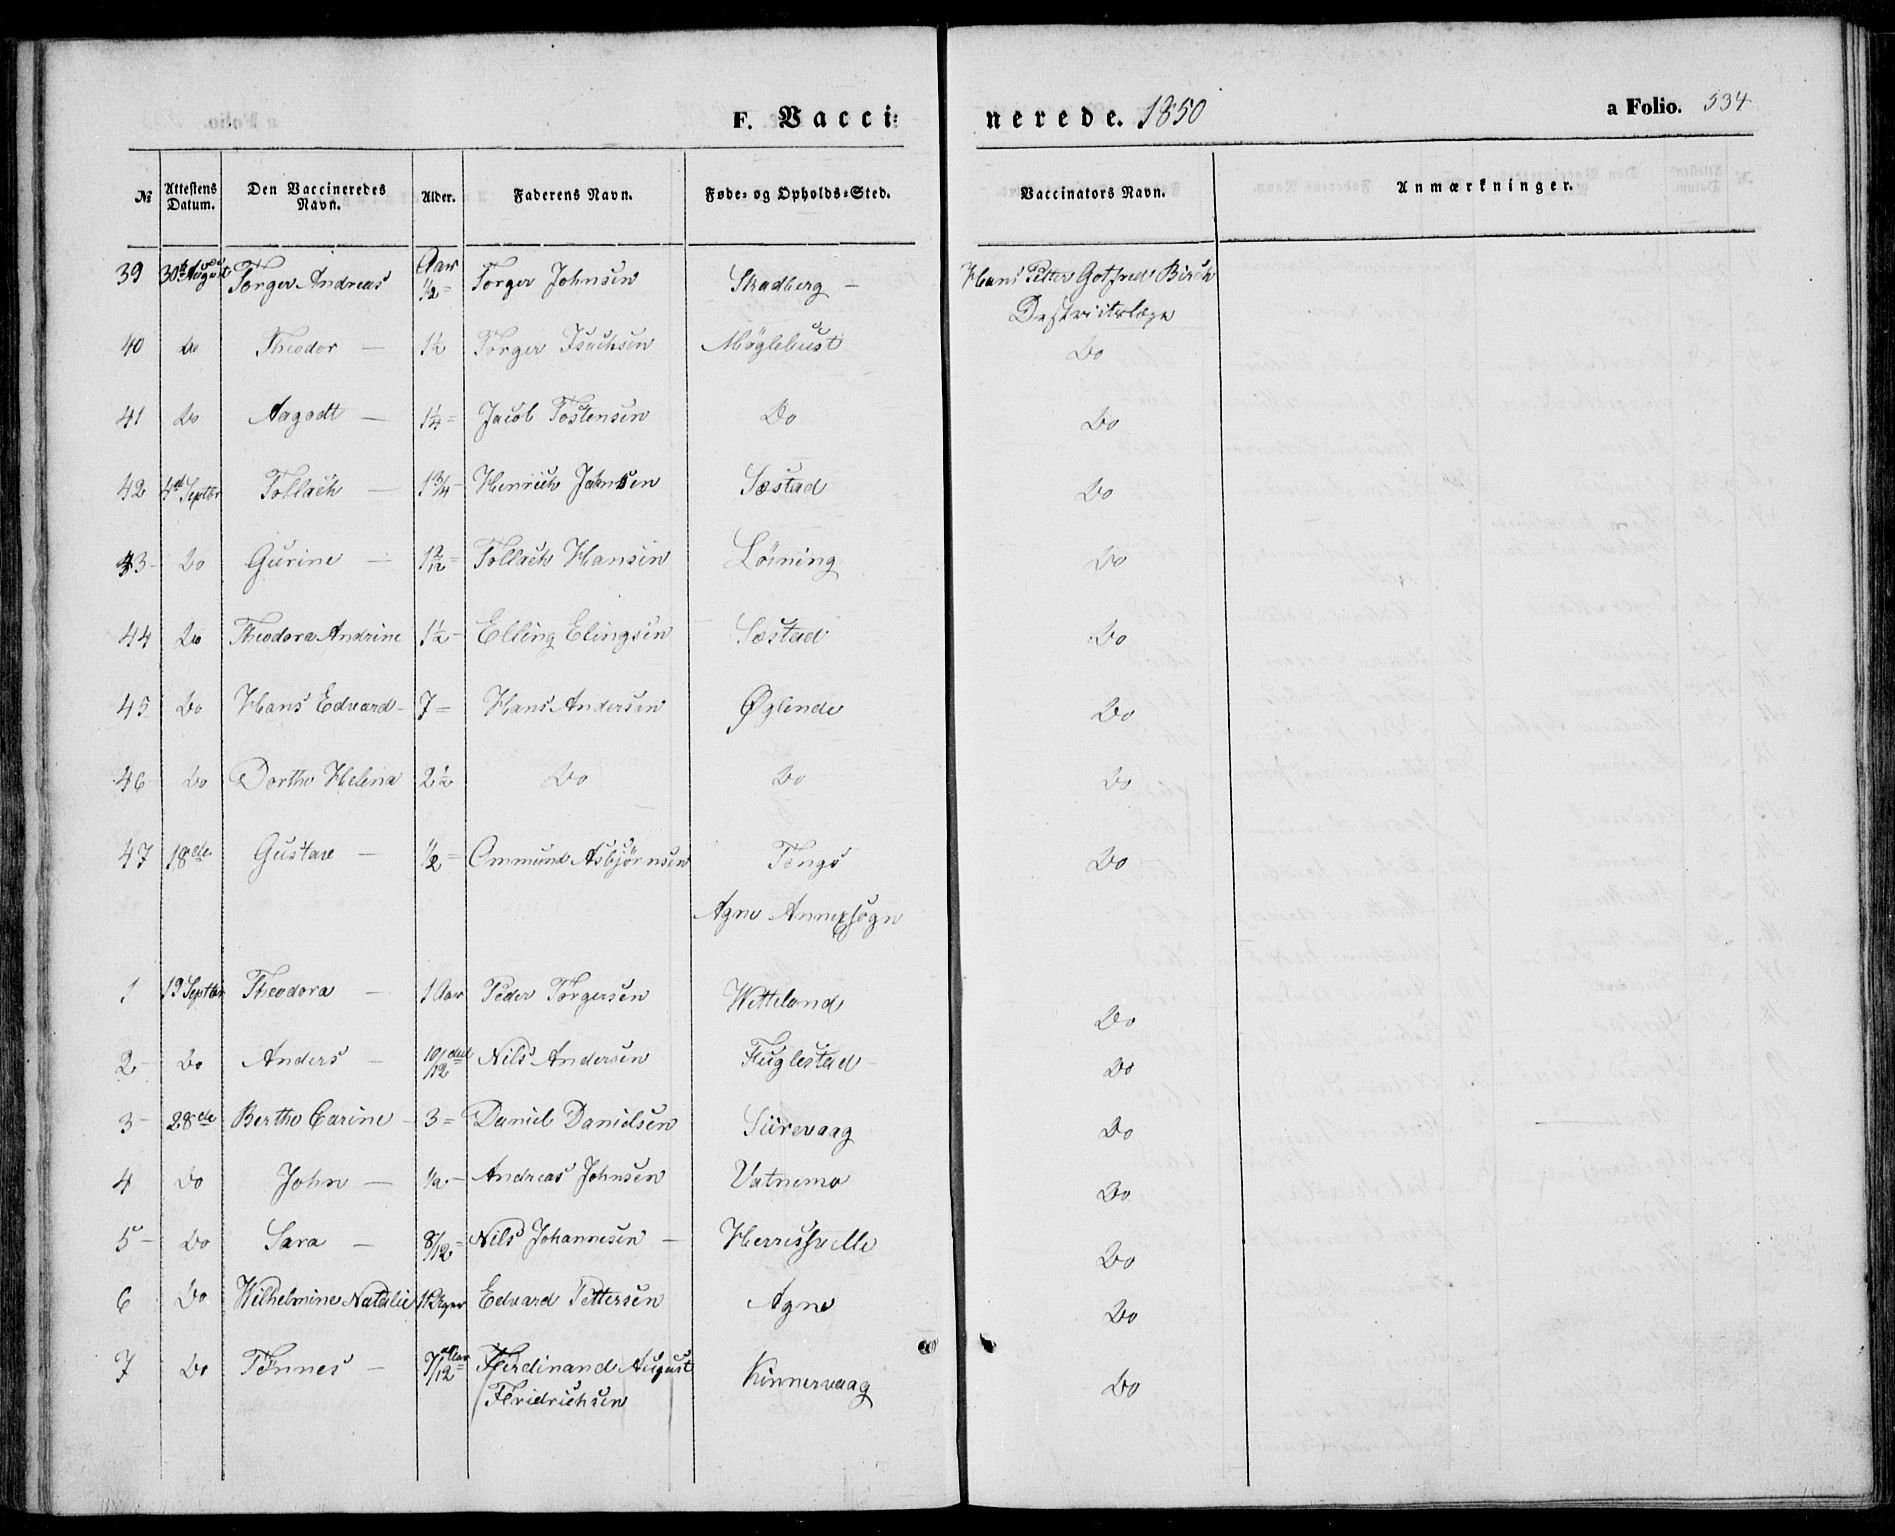 F. Vacci-
nerede. 1850
a Folio. 534
№ Attestens Datum. Den Vaccineredes Navn. Alder. Faderens Navn. Føde- og Opholds-Sted. Vaccinators Navn. Anmærkninger.
39 30te August Torger Andreas Aar ½ = Torger Johnsen Skadberg – Hans Petter Gotfred Birch
Destrictslæge
40 do Theodor – 1½ Torger Isachsen Møglebust Do
41 Do Aagodt – 1¼ = Jacob Tostensen Do Do
42 4de Septbr Tollach – 1¾ – Henrich Jahnsen Sæstad Do
43 – Do Gurine – 1 2/12 = Tollach Hansen Løining Do
44 Do Theodora Andrine 1½ – Elling Elingsen Sæstad Do
45 Do Hans Edvard – 7 = Hans Andersen Øglende Do
46 Do Dorthe Helena 2½ Do Do Do
47 18de Gustav – ½ = Ommund Asbjørnsen Tengs Do
Agne Annexsogn
1 19 Septbr Theodora – 1 Aar Peder Torgersen Wetteland Do
2 – Do Anders – 10/12 Nils Andersen Fuglestad – Do
3 – 28de Berthe Carine – 3 = Daniel Danielsen Siirevaag Do
4 Do John – ½ – Andreas Johnsen Vatnemo Do
5 – Do Sara – 8/12 = Nils Johannesen – Do
6 Do Wilhelmine Natalie Edvard Pettersen Agne Do
7 Do Tønnes – 7/12 = Ferdinand August Kinnervaag Do
Fridrichsen